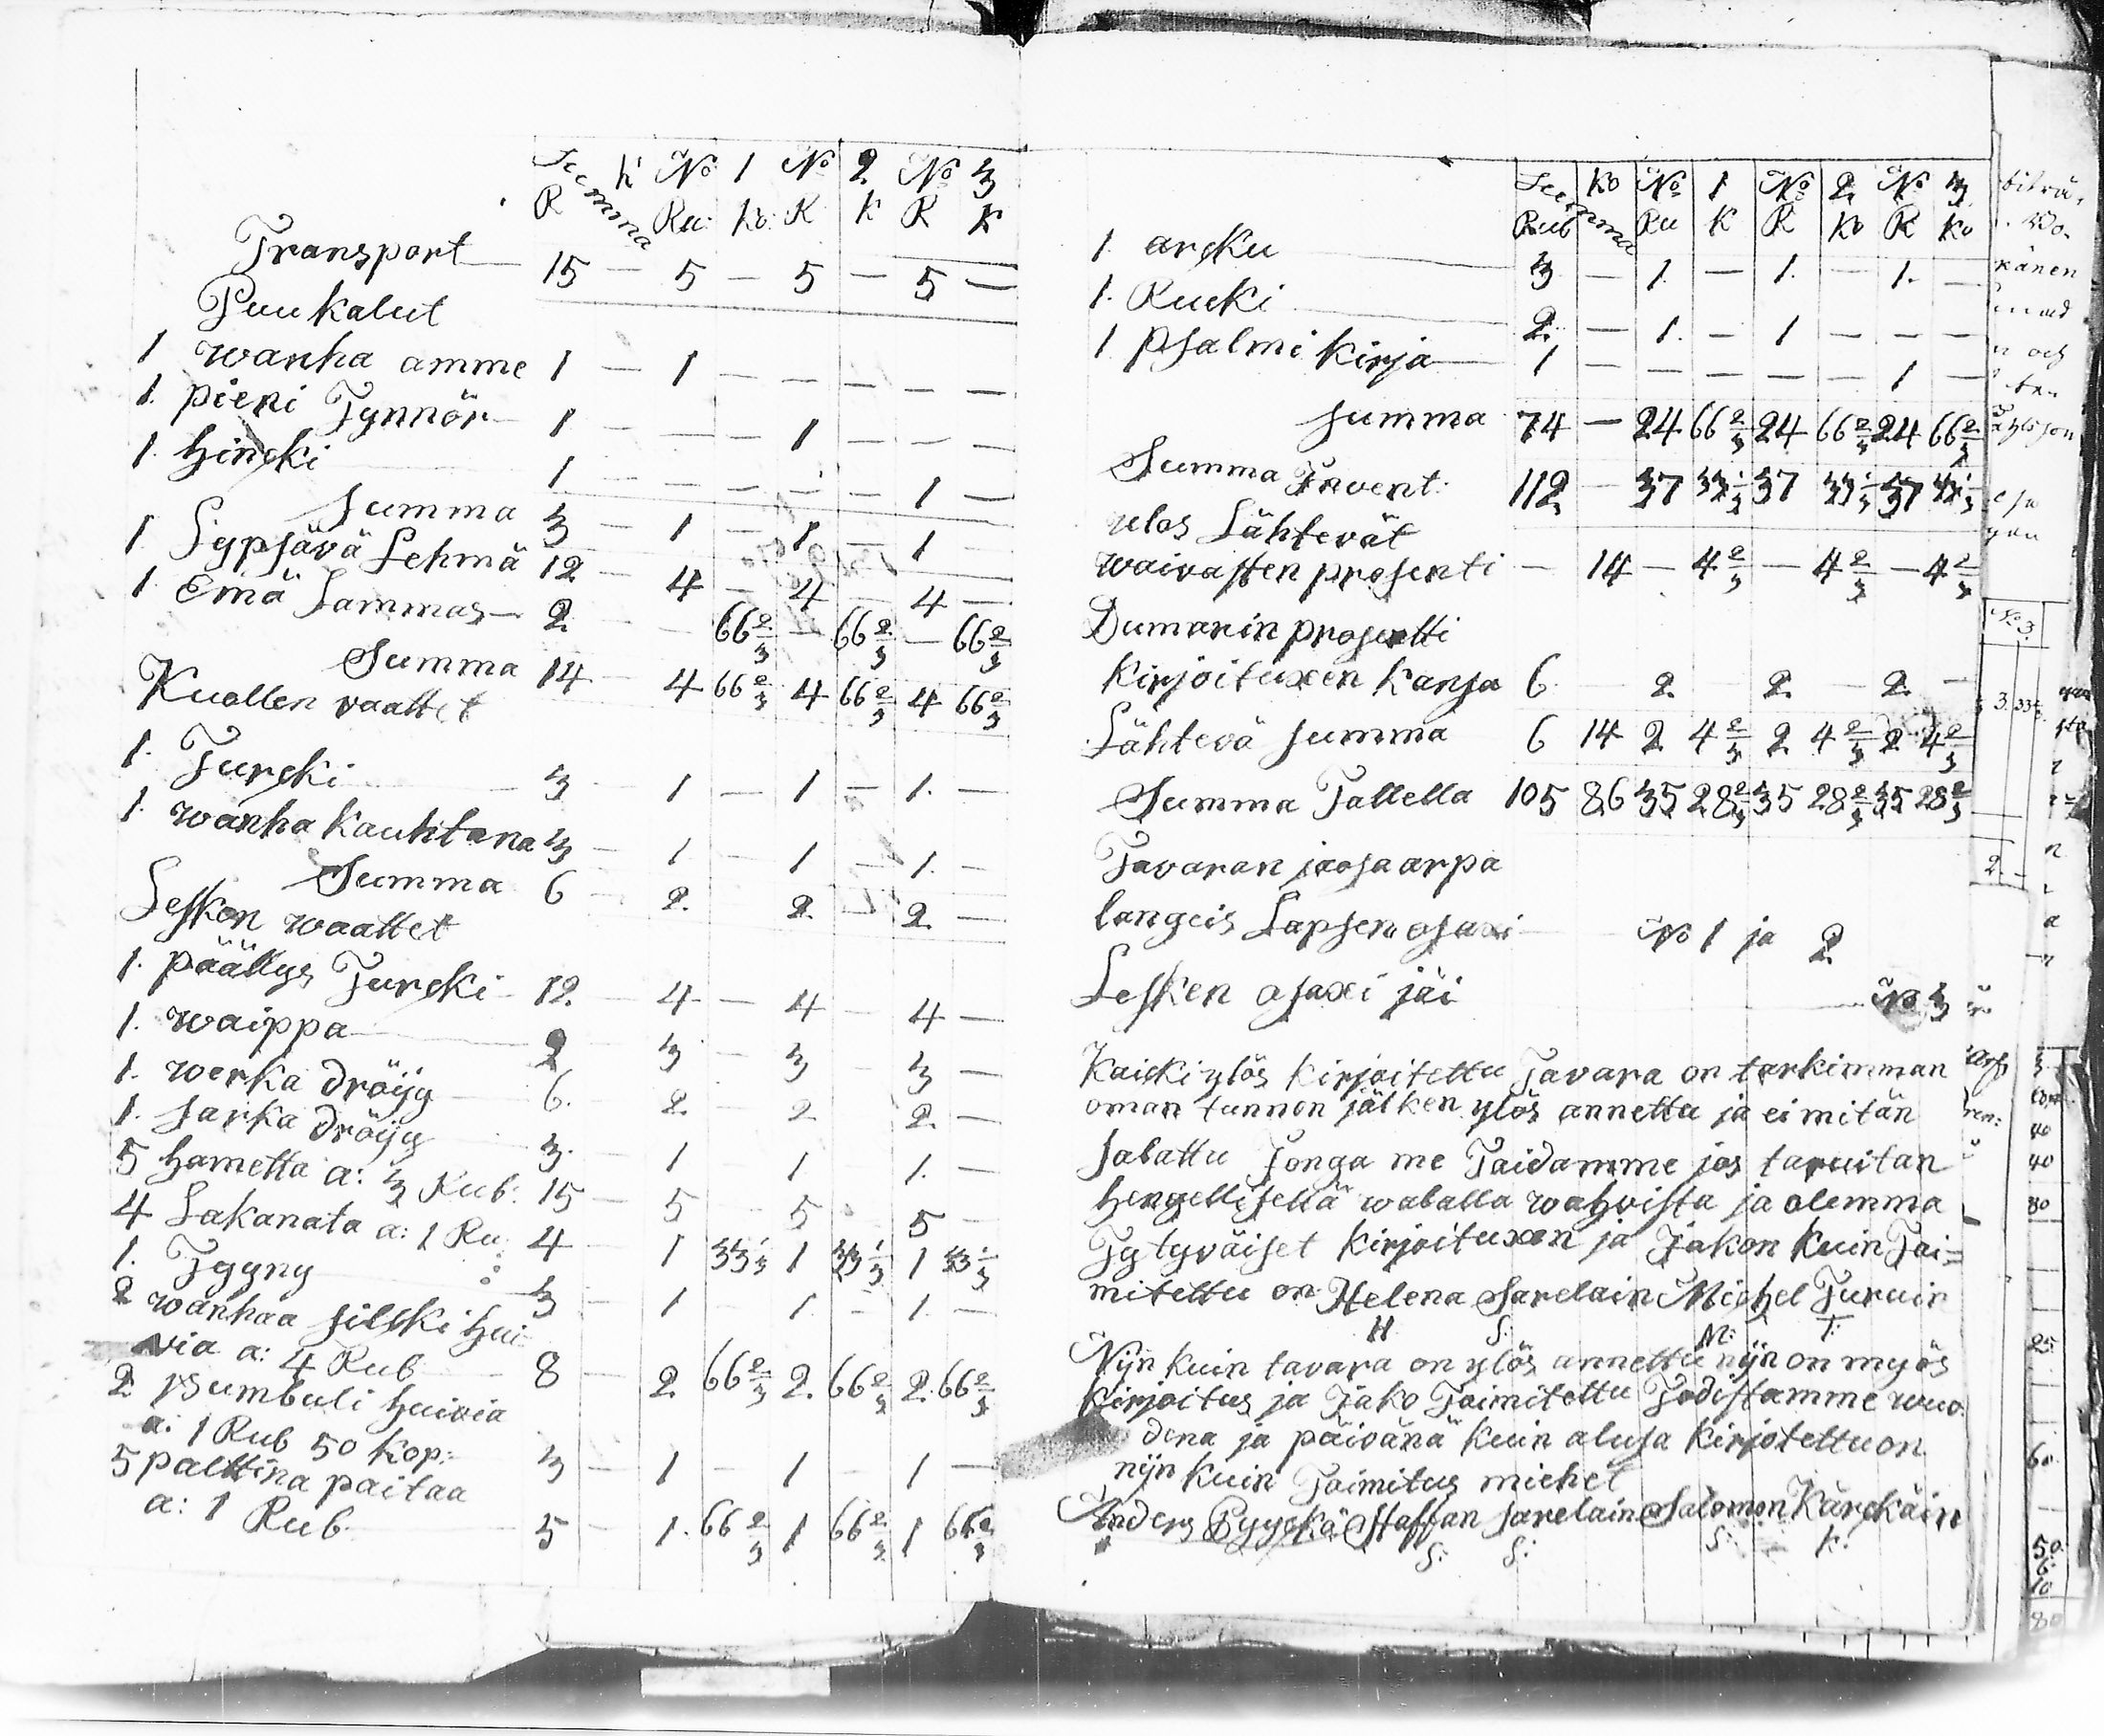 Summa K No 1 No 2 No 3
R Ru: ko: R K R K
Transport 15 — 5 — 5 — 5 —
Puukalut
1 wanha amme 1 — 1 — — — — —
1. pieni Tynnör 1 — — — 1 — — —
1. hincki 1 — — — — — 1 —
Summa 3 — 1 — 1 — 1 —
1 Lypsävä Lehmä 12 — 4 — 4 — 4 —
1 Emä Lammas — 2 — — 66 2/3 — 66 2/3 — 66 2/3
Summa 14 — 4 66 2/3 4 66 2/3 4 66 2/3
Kuollen vaattet
1. Turcki 3 — 1 — 1 — 1. —
1. wanha kauhtana 3 — 1 — 1 — 1. —
Summa 6 — 2. 2. — 2 —
Lesken waattet
1. päällys Turcki 12. — 4 — 4 — 4 —
1. waippa 2 3 — 3 — 3 —
1. werka dröijy 6. 2 — 2 2 —
1. sarka dröijy 3. 1 1 1. —
5 hametta a: 3 Rub: 15 — 5 5 5 —
4 Lakanata a: 1 Ru: 4 — 1 33 1/3 1 33 1/3 1 33 1/3
1. Tyyny 3 — 1 1. — 1. —
2 wanhaa silcki hui
via a: 4 Rub 8 — 2 66 2/3 2. 66 2/3 2. 66 2/3
2 pumbuli huivia
a: 1 Rub 50 kop:
3 — 1 — 1 — 1 —
5 palttina paitaa
a: 1 Rub 5 — 1. 66 2/3 1 66 2/3 1 66 2/3
Summa ko No 1 No 2 No 3
Rub Ru K R ko R ko
1. arcku 3 — 1. — 1. — 1. —
1. Rucki 2. — 1. — 1 — — —
1 psalmi kirja 1 — — — — — 1 —
summa 74 — 24 66 2/3 24 66 2/3 24 66 2/3
Summa Invent: 112 — 37 33 1/3 37 33 1/3 37 33 1/3
ulos Lähtevät
waivasten prosenti — 14 — 4 2/3 — 4 2/3 — 4 2/3
Dumarin prosentti
kirjoituxen kansa 6 2. 2. — 2. —
Lähtevä summa 6 14 2 4 2/3 2 4 2/3 2 4 2/3
Summa Tallella 105 86 35 28 2/3 35 28 2/3 35 28 2/3
Tavaran jaosa arpa
langeis Lapsen osaxi No 1 ja 2
Lesken osaxi jäi No 3
Kaicki ylös kirjoitettu Tavara on tarkimman
oman tunnon jälken ylös annettu ja ei mitän
salattu Jonga me Taidamme jos tarvitan
hengellisellä walalla wahvista ja olemma
Tytyväiset kirjoituxen ja Jakon kuin Toi=
mitettu on Helena Sarelain Michel Turuin
H S: M: T:
Nijn kuin tavara on ylös annettu nijn on myös
kirjoitus ja Jako Toimitettu Todistamme wuo
dena ja päivänä kuin alusa kirjotettu on
nijn kuin Toimitus miehet
Anders Pyyckö Staffan Sarelain Salomon Kärckäin
S: S: S: K: